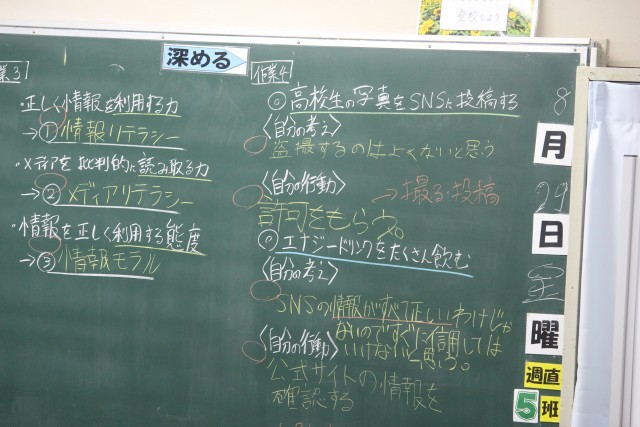 登校しよう
深める
業3
・正しく情報を利用する力
→①情報リテラシー
・メディアを批判的に読み取る力
→②メディアリテラシー
・情報を正しく利用する態度
→③情報モラル
作業4
◎高校生の写真をSNSに投稿する
〈自分の考え〉
盗撮するのはよくないと思う
〈自分の行動〉
→撮る・投稿
許可をもらう。
◎エナジードリンクをたくさん飲む
〈自分の考え〉
SNSの情報がすべて正しいわけじゃ
ないのですぐに信用しては
いけないと思う。
〈自分の行動〉
公式サイトの情報を
確認する
8
月
29
日
金
曜
週直
5班